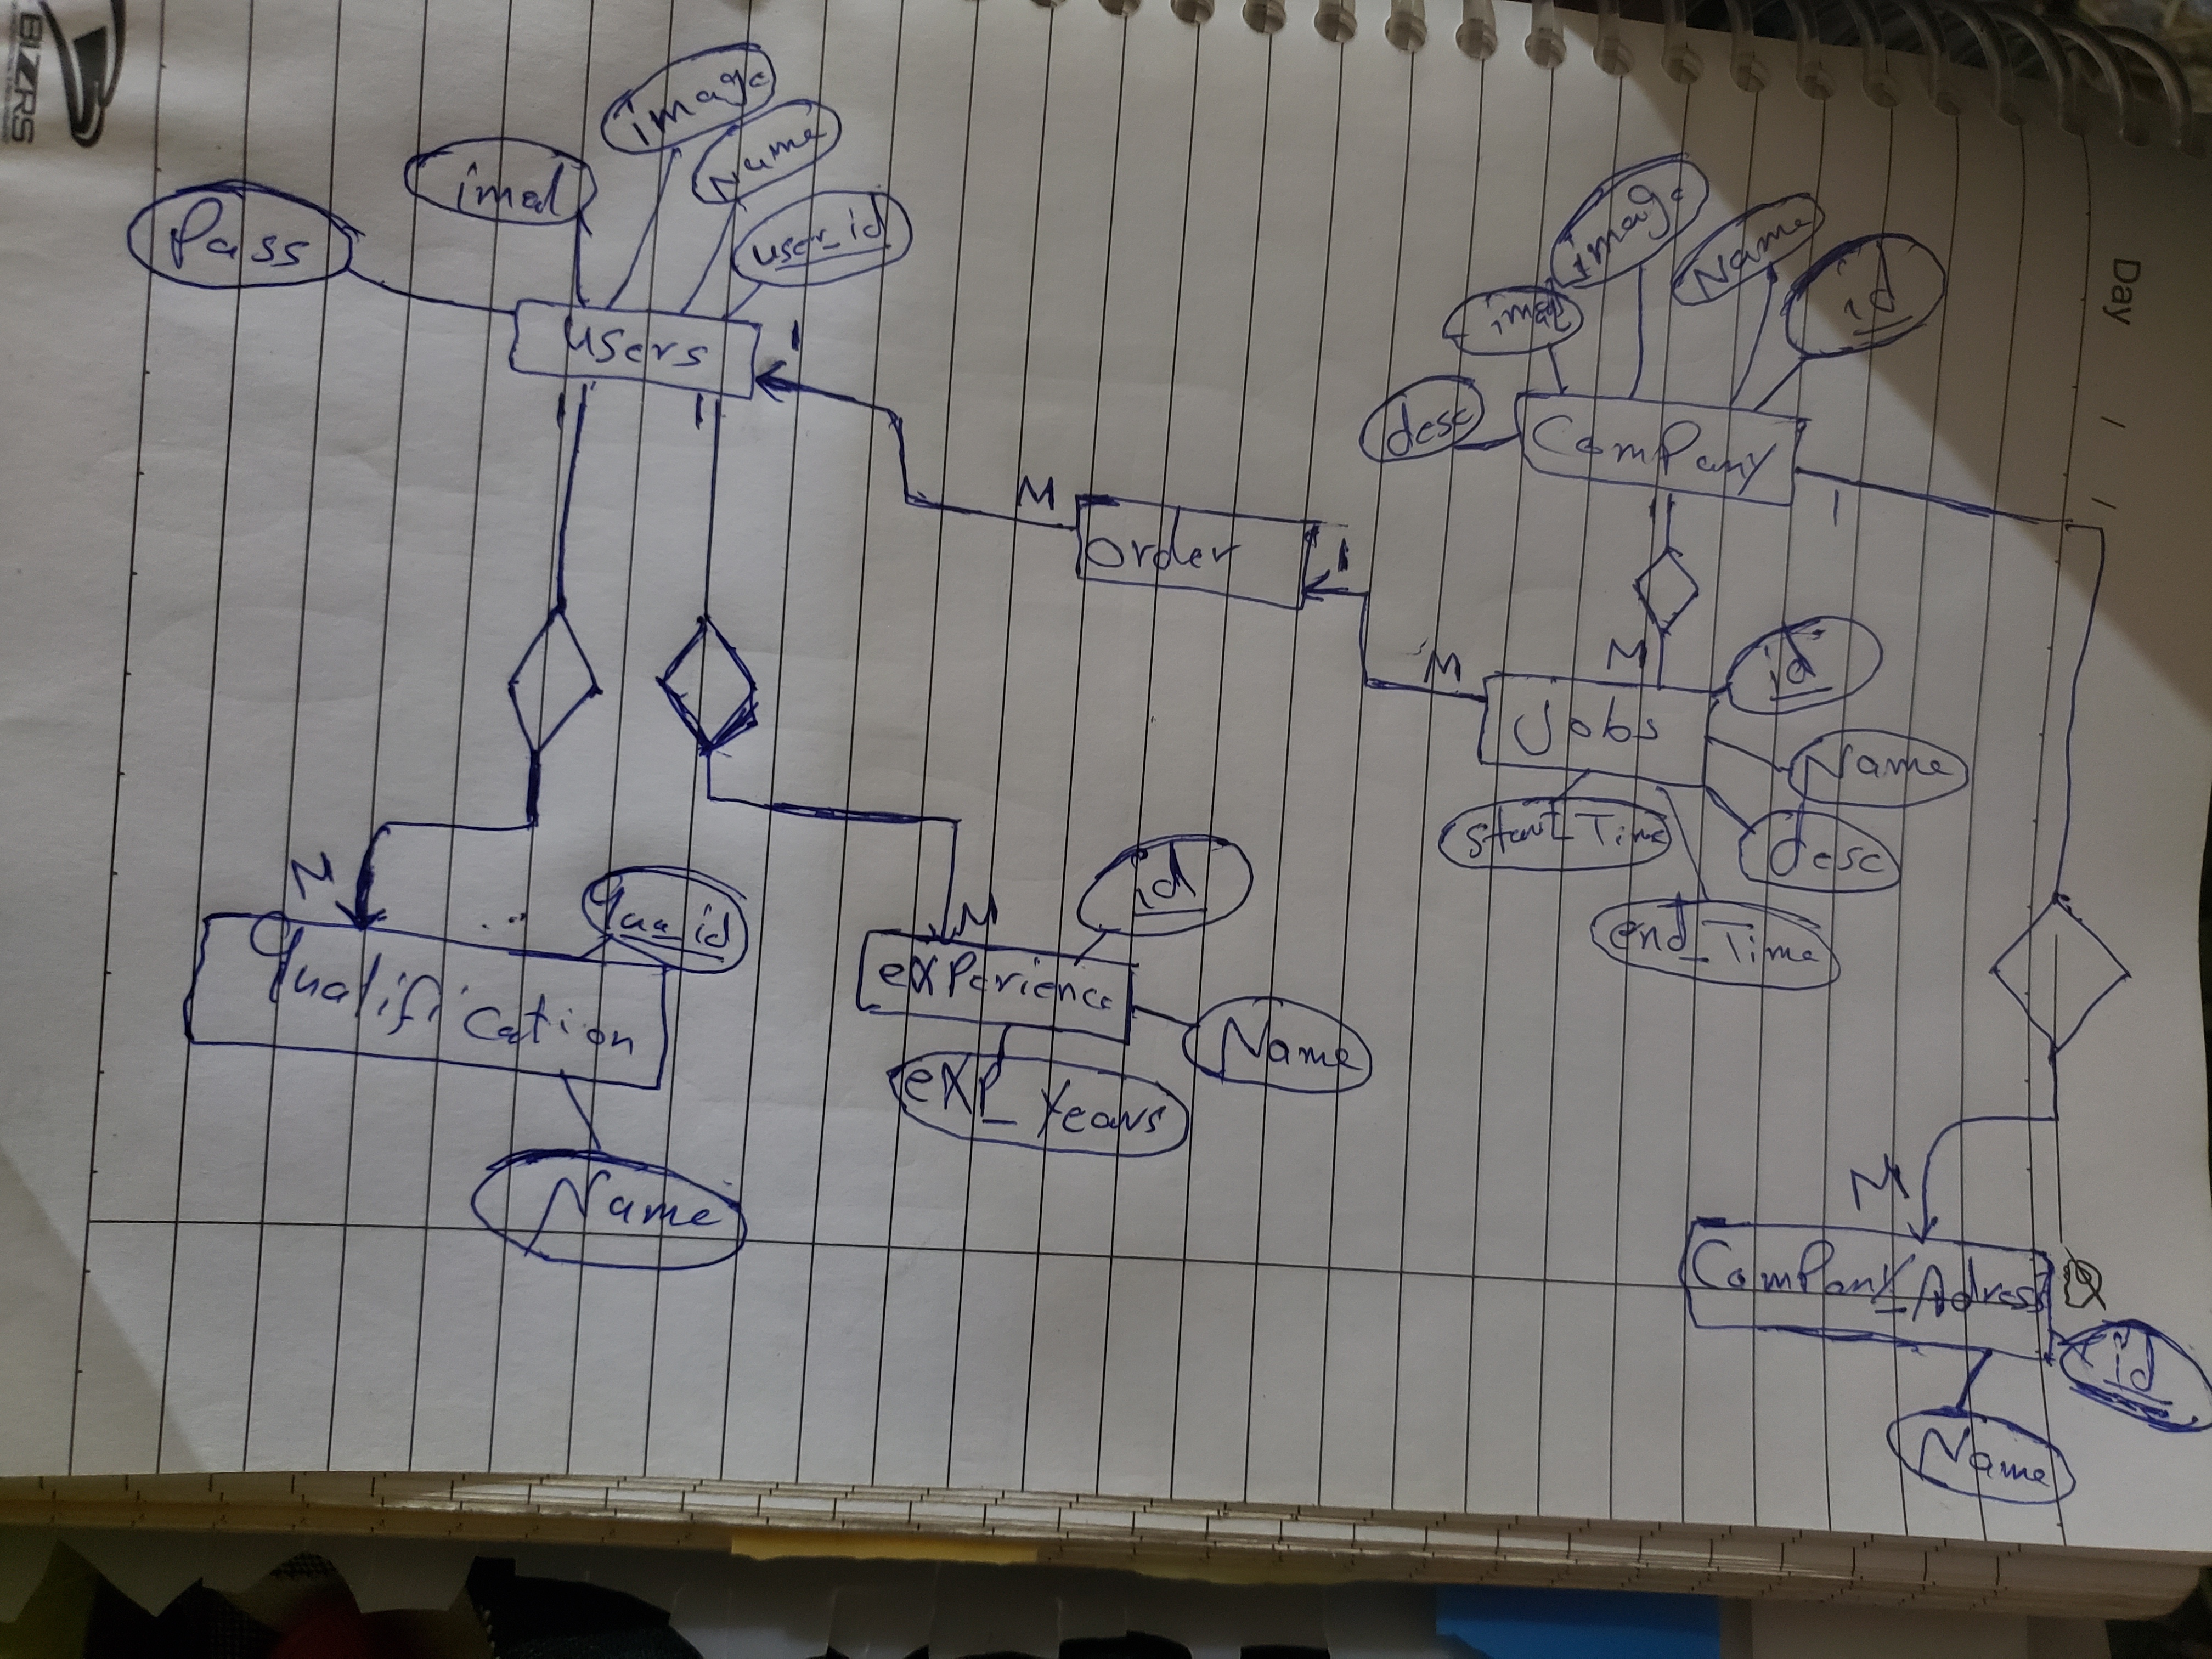 BIZRS
Day
Pass
imal
image
Name
user_id
users
1
1
1
N
Qualification
qua_id
Name
M
experience
exp_Years
id
Name
M
Order
1
M
Jobs
start_Time
end_Time
Desc
Name
id
M
1
Company
desc
imal
image
Name
id
1
M
Company_Adress
Name
id